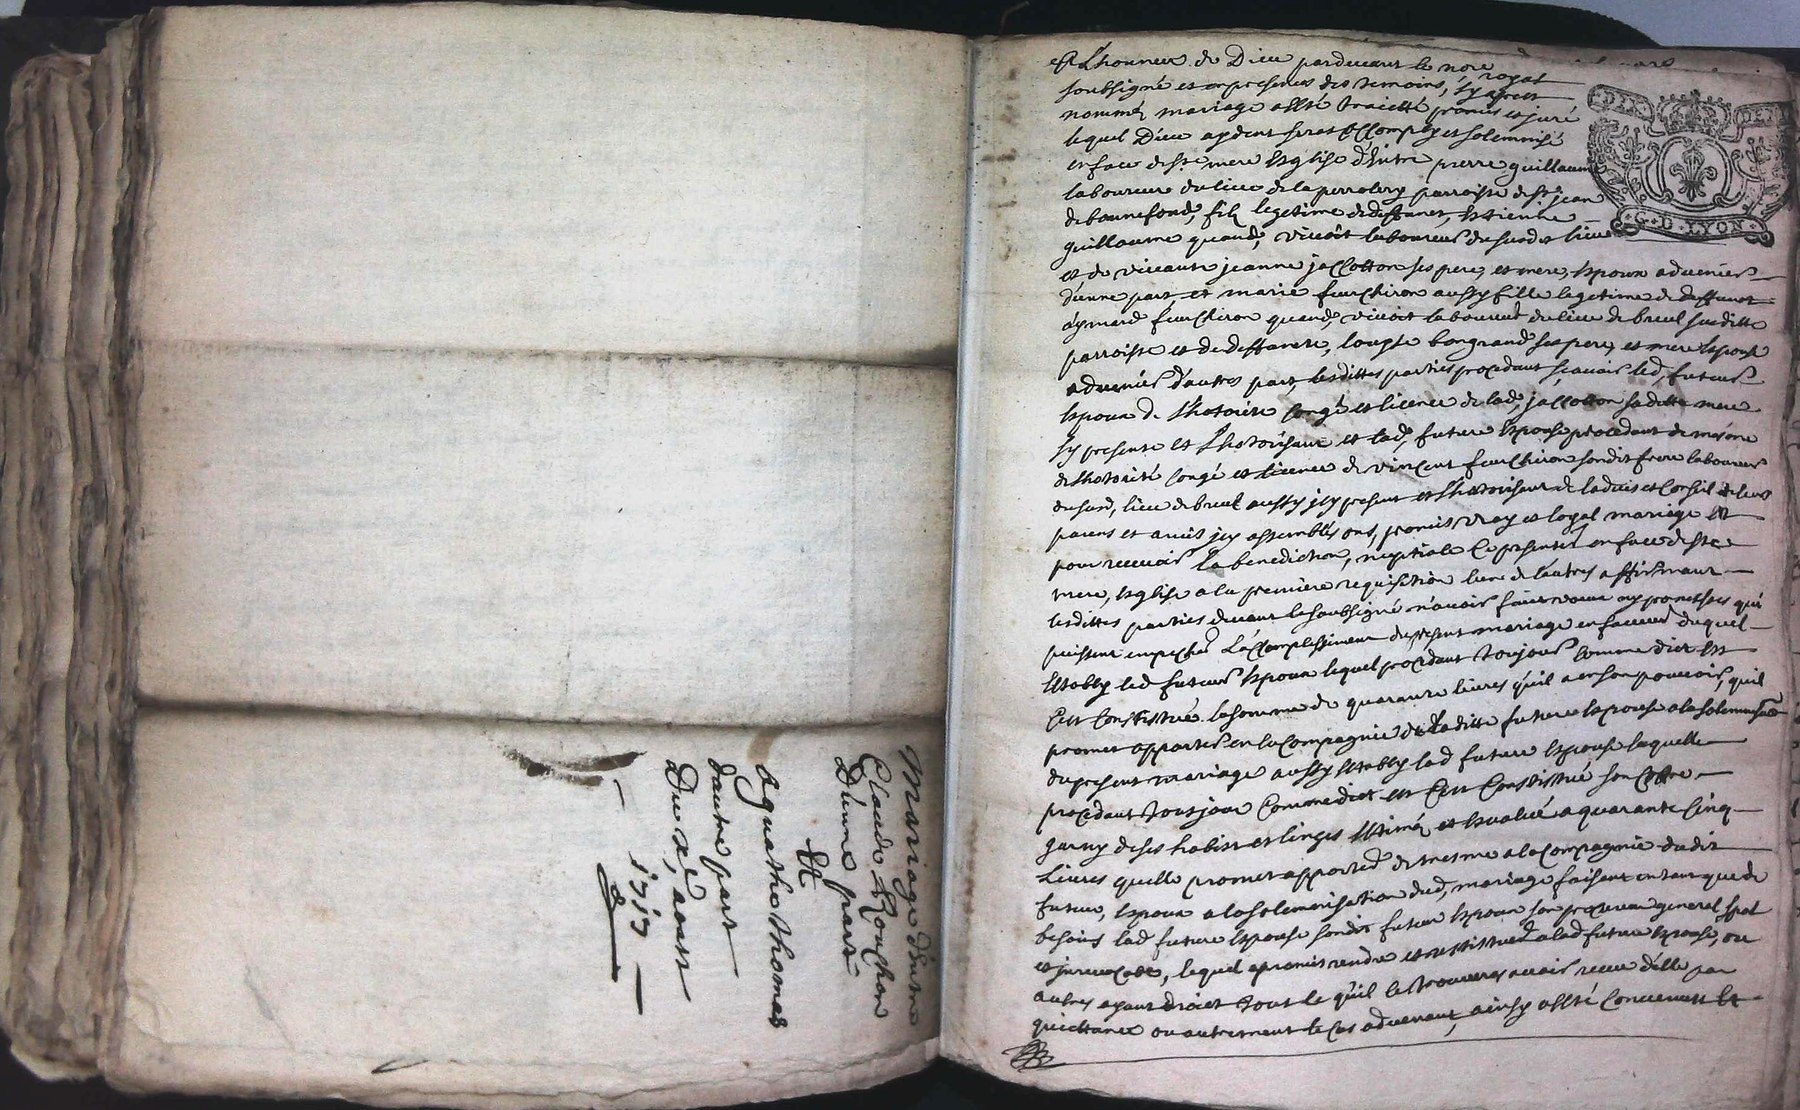 Mariage d'entre
Claude Rouchon
D'eunne part
Et
Agathe thomas
d'autre part
Du 2e aoust
1717
A Lhonneur de Dieu pardevant le nore royal
soubsigné et en presences des temoins, sy apres
nommés mariage a esté traicté promis et juré
lequel Dieu aydent serat accomply et solemnisé
en face de ste mere Esglise d'Entre pierre guillaume
laboureur du lieu de la parroisse de st jean
de bonnefond, fils legetime de deffunct, Estienne
guillaume quand, vivoit laboureur dususdit lieu
et de vivante jeanne jacotton ses pere, et mere, Espoux advenir
d'une part, et marie feuchiron aussy fille legetime de deffunct
aymard feuchiron quand, vivoit laboureur du lieu de breul susditte
parroisse et de deffuncte, bongrand ses pere, et mere Espouse
advenir d'autres part, lesdittes parties procedant sçavoir led, futeur
Espoux de Lhotorité congé et licence de lad, jacotton saditte mere
sy presente et Lhotorisant et lad, future Espouse procedant de mesme
de Lhotorité congé et licence de vincent feuchiron sondit frere laboureur
dususd, lieu de breul aussy jcy present et Lhotorisant de ladvis et Conseil de leurs
parens et amis jcy assemblés ont, promis vray et loyal mariage Et
pour recevoir la benediction, nuptiale se presenter en face de ste
mere, Esglise a la premiere requisition lune de lautres affirmant
lesdittes parties devant le soubsigné n'avoir fait vœux ny promesses qui
puissent empecher L'accomplissiment du present mariage en faveur duquel
Estably led futeur Espoux lequel procedant toujours comme dict Est
s'est Constitué la somme de quarante livres qu'il a en son pouvoir, quil
promet apporter en la Compagnie de laditte future Espouse a la solemnisaon
du present mariage aussy Estably lad future Espouse laquelle
procedant toutjour comme dict est s'est Constitué son coffre
garny de ses habits et linges Estimés et Evalué a quarante cinq
Livres quelle promet apporter de mesme a la Compagnie dudit
futeur, Espoux a la solemnisation dud, mariage faisant en tant que de
besoins lad future Espouse sondit futeur Espoux son procureur general spal
et jrrevocable, lequel a promis rendre et restittuer a lad future Espouse, ou
autres ayant droict tout le qu'il se trouverat avoir receu d'elle par
quictance ou autrement le cas advenant, ainsy a esté Convenutt Et
DIX DEN
G D LYON